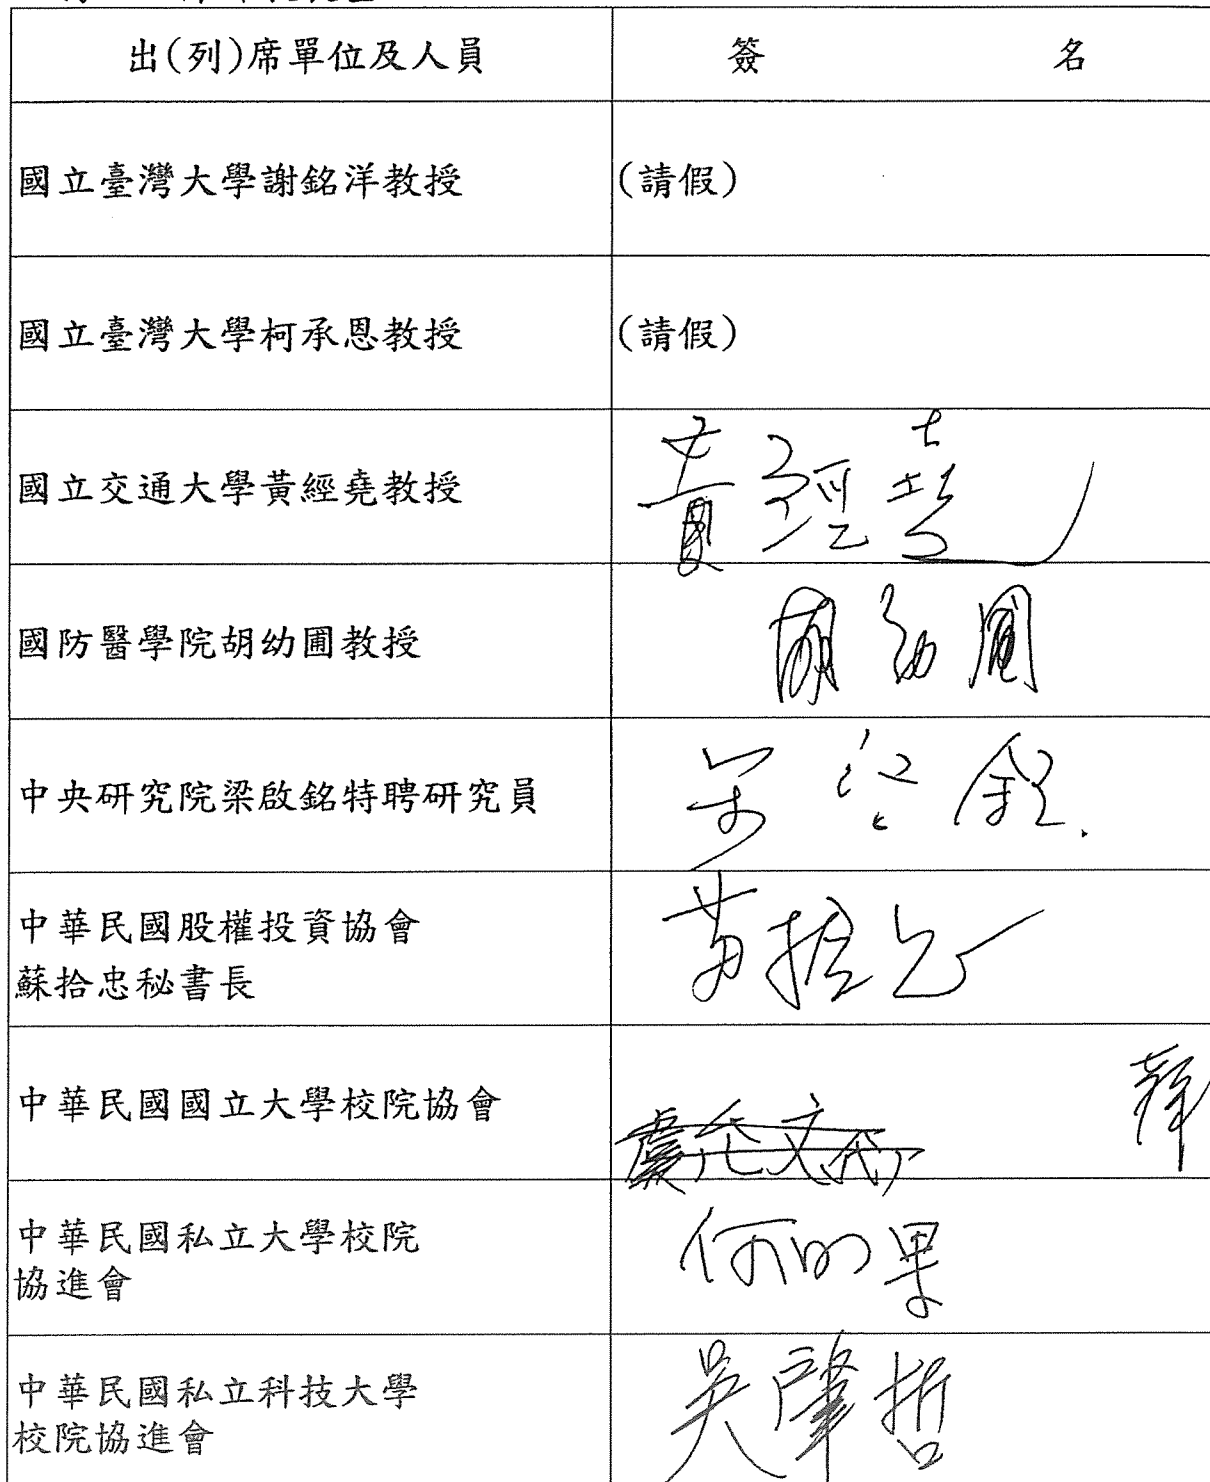 出(列)席單位及人員
簽 名
國立臺灣大學謝銘洋教授
(請假)
國立臺灣大學柯承恩教授
(請假)
國立交通大學黃經堯教授
黃經堯
國防醫學院胡幼圃教授
胡幼圃
中央研究院梁啟銘特聘研究員
中華民國股權投資協會
蘇拾忠秘書長
中華民國國立大學校院協會
中華民國私立大學校院
協進會
中華民國私立科技大學
校院協進會
吳肇哲